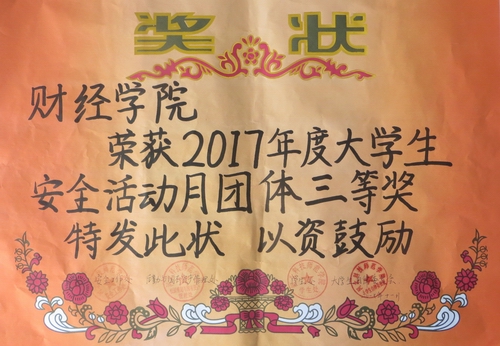 奖状
财经学院
荣获2017年度大学生
安全活动月团体三等奖
特发此状 以资鼓励